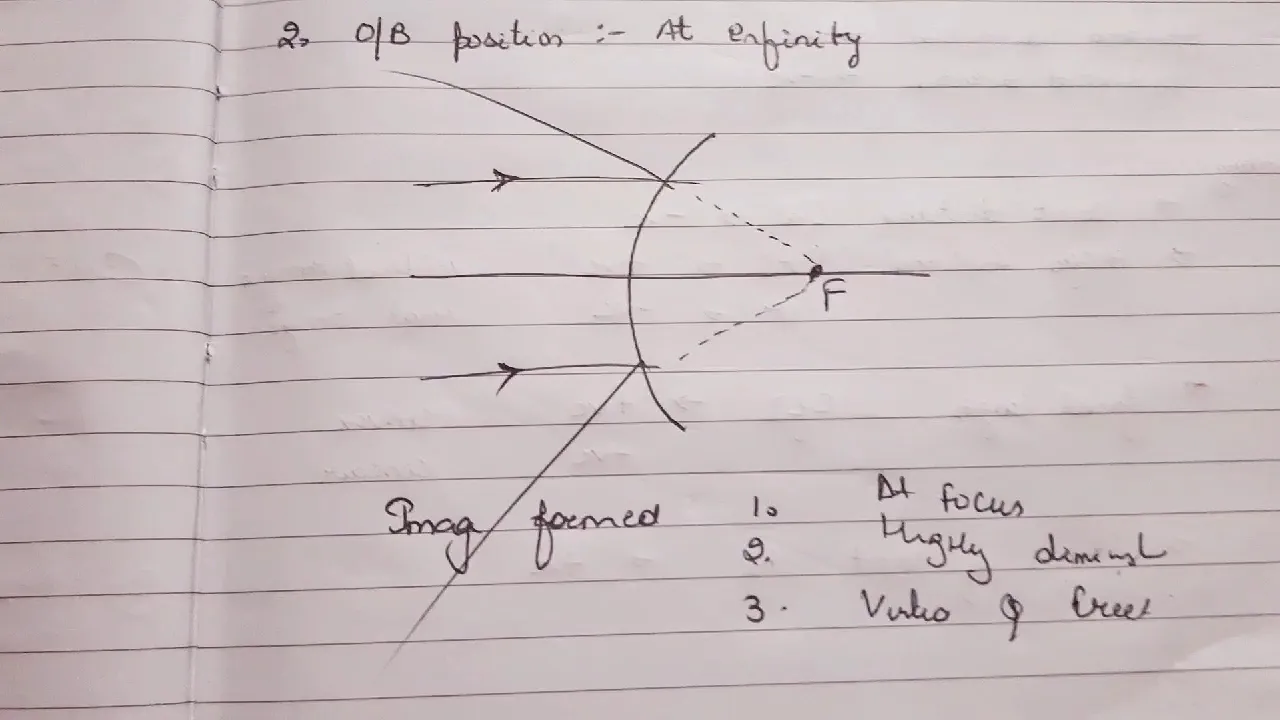 2. O/B position :- At enfinity
F
Imag formed 1. At focus
2. Highly
3. & Erect